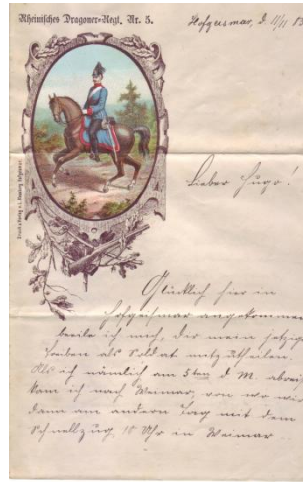 Rheinisches Dragoner-Regt. Nr. 5.
Hofgeismar, d. 11/11
Lieber Hugo!
Glücklich hier in
Hofgeismar angekommen
beeile ich mich, Dir mein jetziges
Leben als Soldat mitzutheilen.
Als ich nämlich am 5ten d. M.
kam ich nach Weimar, von wo wir
dann am andern Tag mit dem
Schnellzug 10 Uhr in Weimar